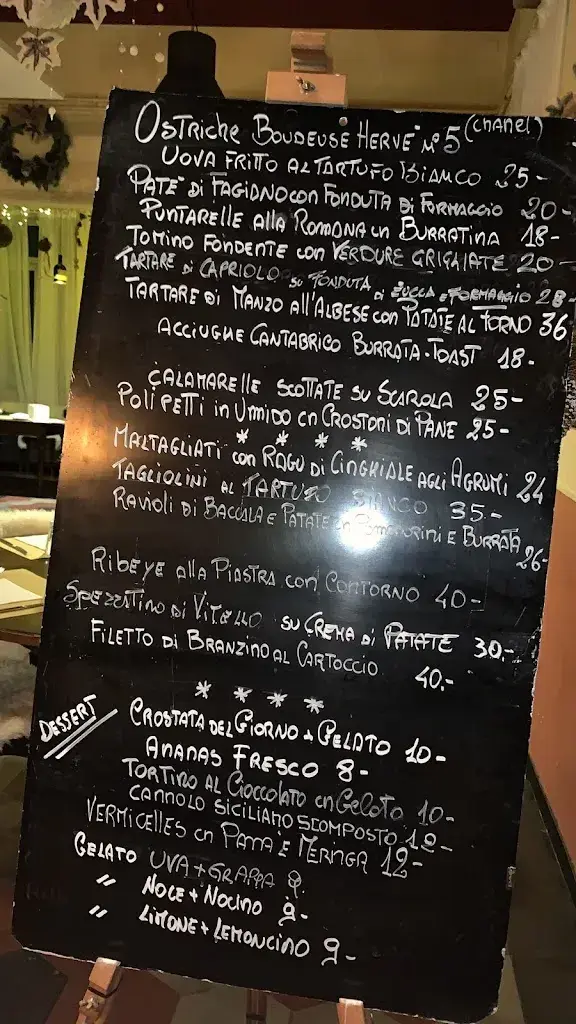 Ostriche Boudeuse Herve N°5 (Chanel)
Uova Fritto al Tartufo Bianco 25-
Paté di Fagiano con Fonduta di Formaggio 20-
Puntarelle alla Romana cn Burratina 18-
Tomino Fondente con Verdure Grigliate 20-
Tartare di Capriolo su Fonduta di Zucca e Formaggio 28-
Tartare di Manzo all'Albese con Patate al Forno 36
Acciughe Cantabrico Burrata-Toast 18-
Calamarelle Scottate su Scarola 25-
Polipetti in Umido cn Crostoni di Pane 25-
* * * *
Maltagliati con Ragù di Cinghiale agli Agrumi 24
Tagliolini al Tartufo Bianco 35-
Ravioli di Baccala e Patate cn Pomodorini e Burrata 26-
Ribeye alla Piastra con Contorno 40-
Spezzatino di Vitello su Crema di Patate 30.-
Filetto di Branzino al Cartoccio 40.-
* * * *
Dessert
Crostata del Giorno + Gelato 10-
Ananas Fresco 8-
Tortino al Cioccolato cn Gelato 10-
Cannolo Siciliano Scomposto 12-
Vermicelles cn Panna e Meringa 12-
Gelato Uva + Grappa 9.
" Noce + Nocino 9-
" Limone + Lemoncino 9-